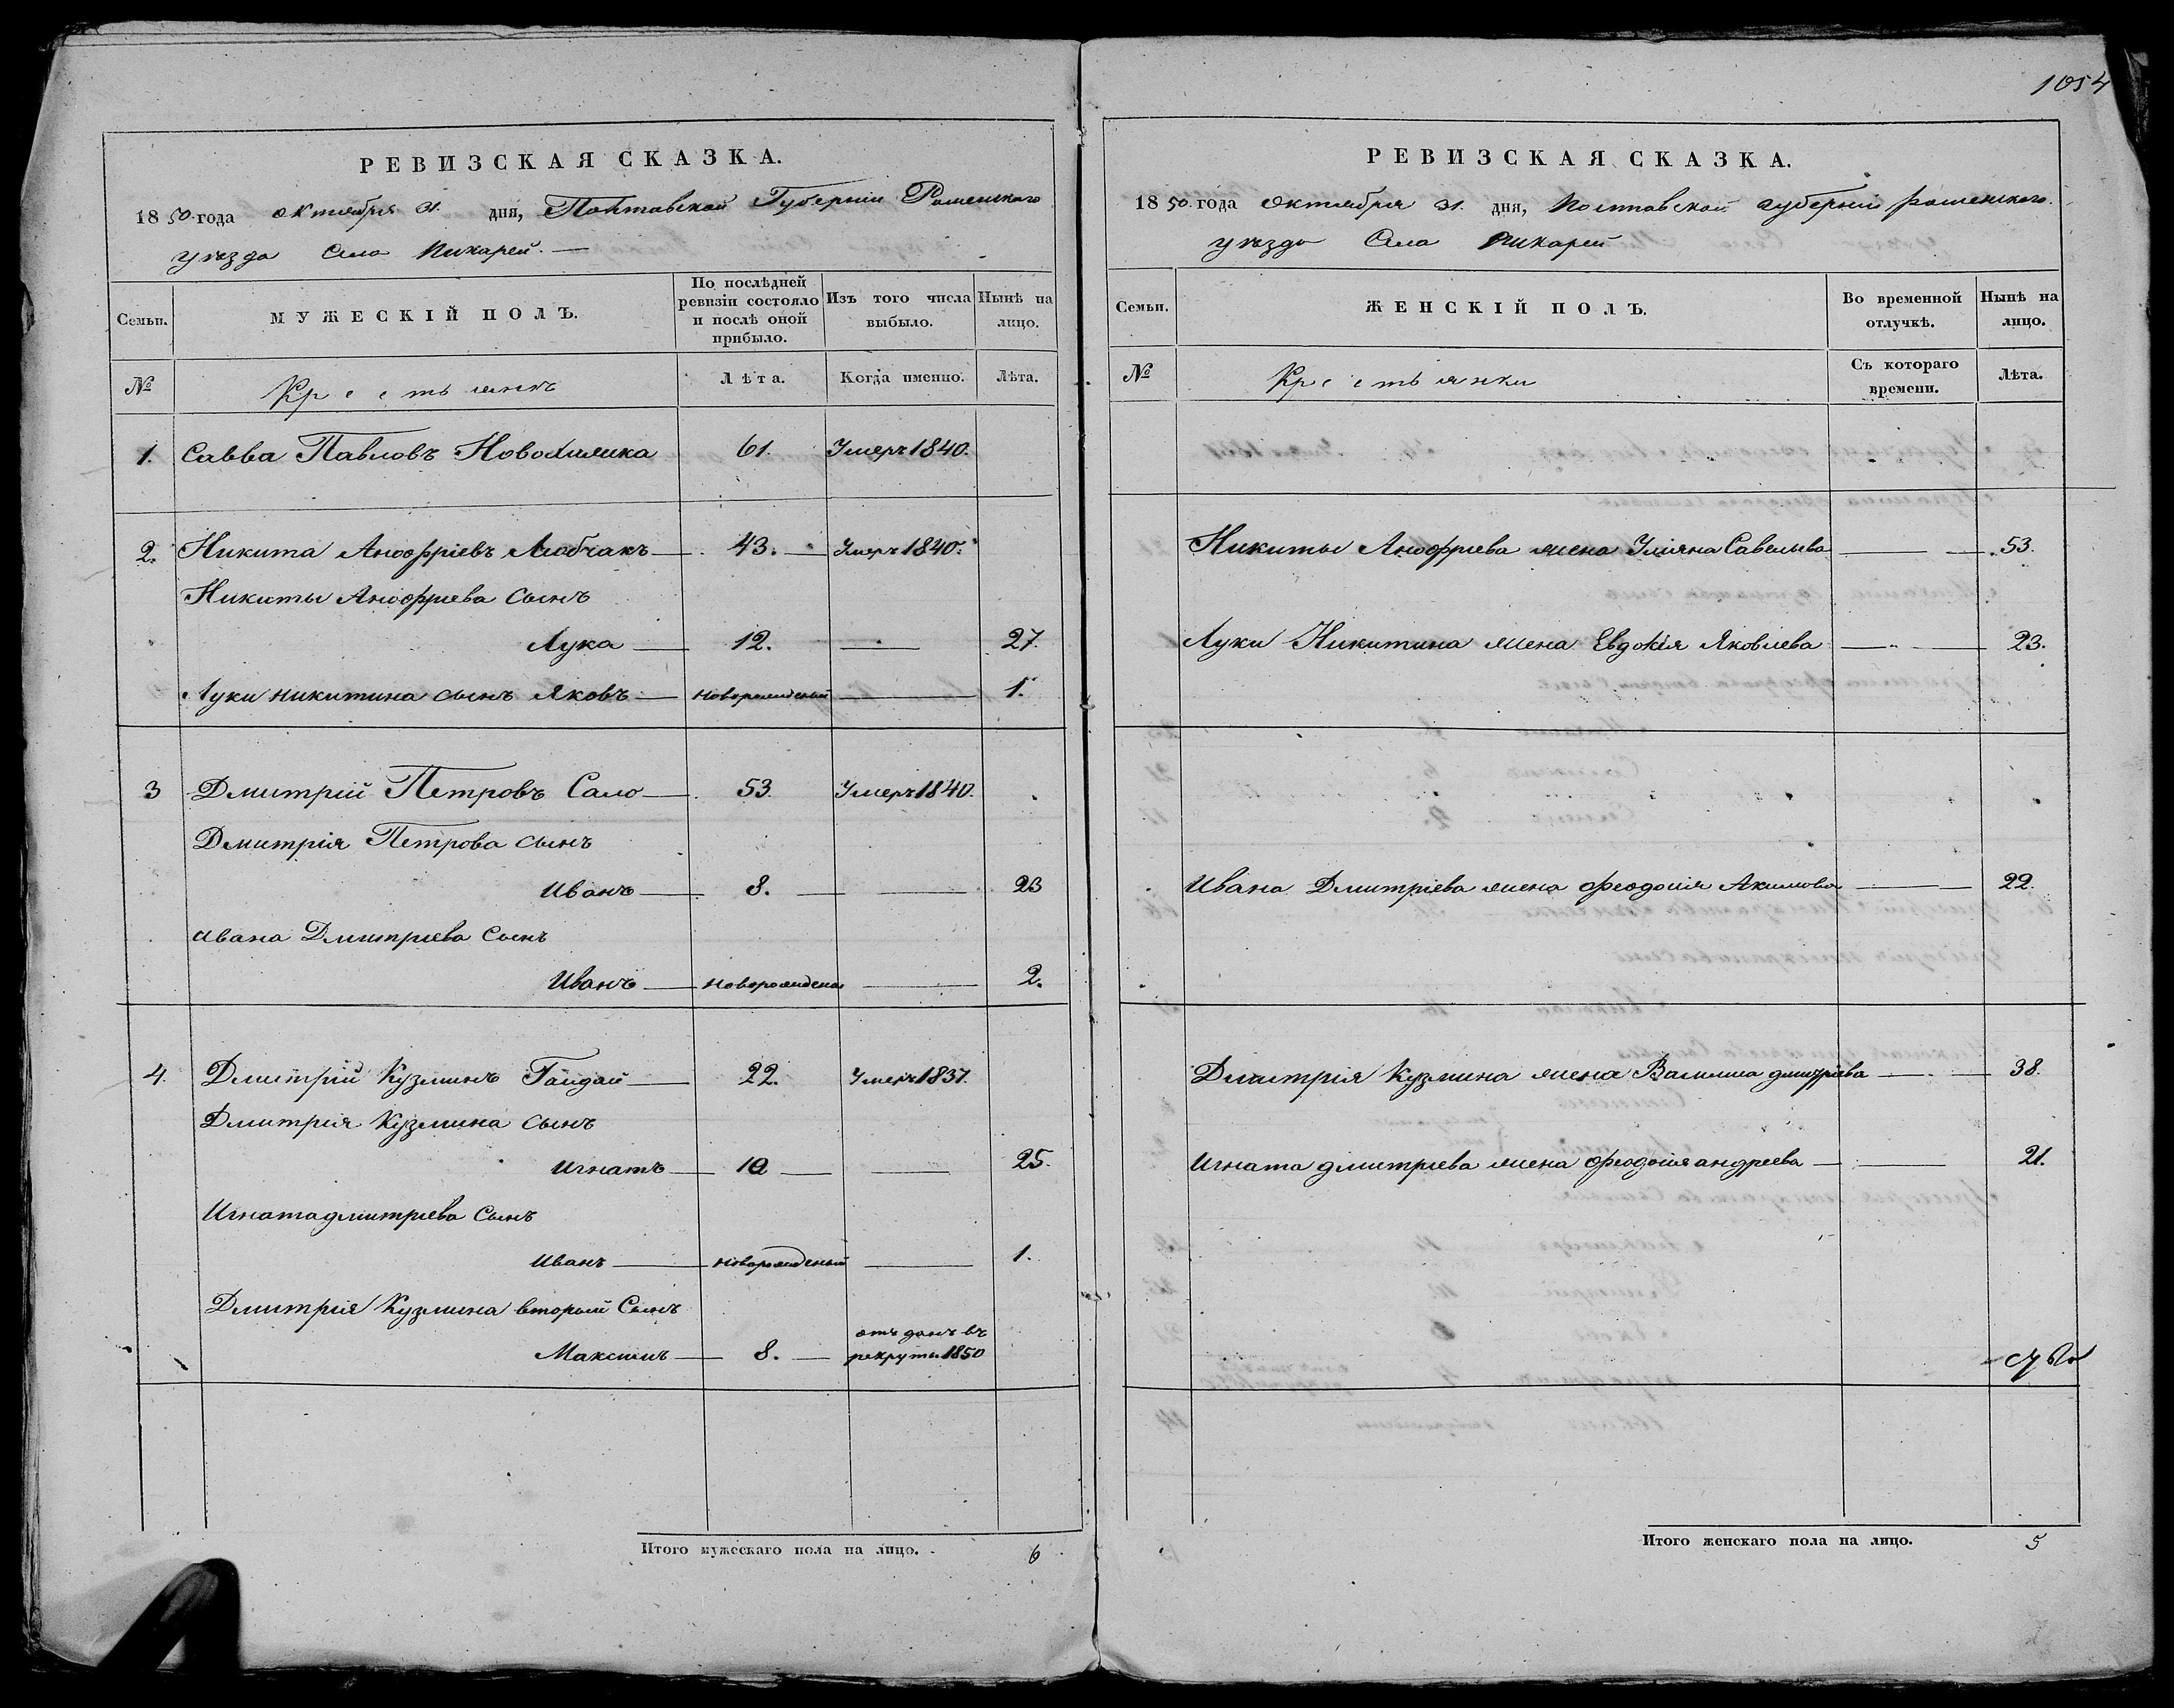 1054
РЕВИЗСКАЯ СКАЗКА.
1850 года октября 31 дня, Полтавской Губерніи Роменскаго
уѣзда Села Пикарей.
Семьи. МУЖЕСКІЙ ПОЛЪ. По послѣдней ревизіи состояло и послѣ оной прибыло. Изъ того числа выбыло. Нынѣ на лицо.
№ Крестьянъ Лѣта. Когда именно. Лѣта.
1. Савва Павловъ 61. Умеръ 1840.
2. Никита Анофріевъ Любчакъ 43. Умеръ 1840.
Никиты Анофриева Сынъ
Лука 12. 27.
Луки никитина сынъ Яковъ новорожденый 1.
3 Дмитрій Петровъ Сало 53. Умеръ 1840.
Дмитрія Петрова сынъ
Иванъ 8. 23
Ивана Дмитриева Сынъ
Иванъ новорожденъ 2.
4. Дмитрій Кузминъ Гайдай 22. Умеръ 1837.
Дмитрия Кузмина сынъ
Игнатъ 10 25.
Игната дмитриева Сынъ
Иванъ новорожденый 1.
Дмитрия Кузмина вторый Сынъ
отъ данъ въ
Максимъ 8. рекруты 1850
Итого мужескаго пола на лицо. 6
РЕВИЗСКАЯ СКАЗКА.
1850 года Октября 31. дня, Полтавской губерніи роменскаго.
уѣзда Села Пикарей
Семьи. ЖЕНСКІЙ ПОЛЪ. Во временной отлучкѣ. Нынѣ на лицо.
№ Крестьянки Съ котораго времени. Лѣта.
Никиты Анофриева жена Уліяна Савельева 53.
Луки Никитина жена Евдокія Яковлева 23.
Ивана Дмитріева жена Феодосія Акимова 22.
Дмитрія Кузмина жена Василиса дмитріева 38.
Игната дмитриева жена Феодосія андреева 21.
Итого женскаго пола на лицо. 5